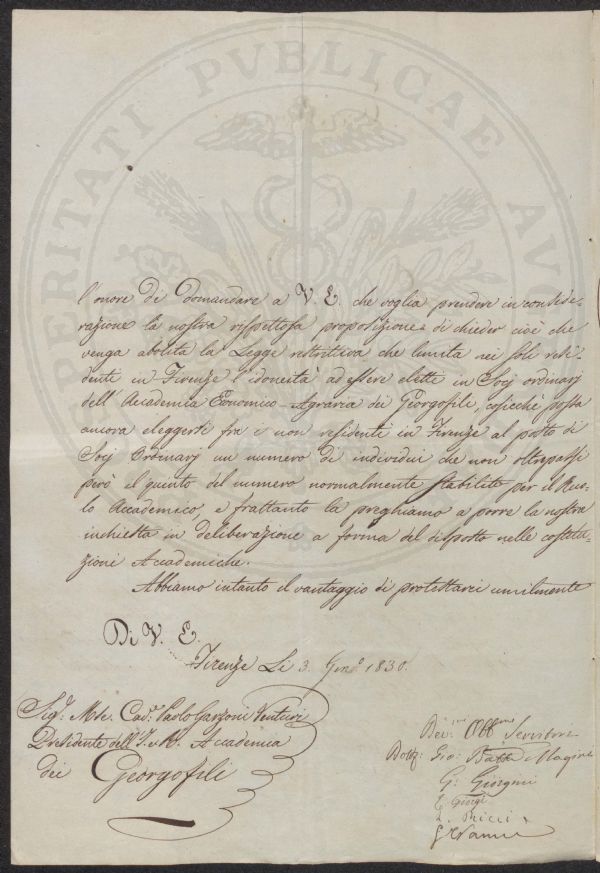 PROSPERITATI PVBLICAE AVGENDAE
l'onore di domandare a V. E. che voglia prendere in conside-
razione la nostra rispettosa proposizione di chieder cioè che
venga abolita la Legge restrittiva che limita nei soli resi-
denti in Firenze l'idoneità ad essere eletti in Socj ordinarj
dell'Accademia Economico-Agraria dei Georgofili, cosicché possa
ancora eleggersi fra i non residenti in Firenze al posto di
Socj Ordinarj un numero di individui che non oltrepassi
però il quinto del numero normalmente stabilito per il Ruo-
lo Accademico, e frattanto la preghiamo a porre la nostra
inchiesta in deliberazione a forma del disposto nelle costitu-
zioni Accademiche.
Abbiamo intanto il vantaggio di protestarci umilmente
Di V. E.
Firenze Li 3. Genº 1830.
Sigr. Mse. Cavr. Paolo Garzoni Venturi
Presidente dell'I. e R. Accademia
dei Georgofili
Devmi Obbmi Servitori
Gio: Batta
G: Giorgini
E. Giorgi
L. Ricci